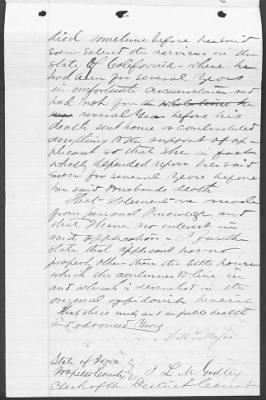 died sometime before her said
son entered the services in the
state of California - where he
had been for several years
in unfortunate circumstances and
had not for
several years before his
death sent home or contributed
anything to the support of ap-
plicant so that she in fact
wholly depended upon her said
son for several years before
her said husbands death
That statements are made
from personal knowledge and
that I have no interest in
said application - I further
state that applicant has no
property other than the little house
which she continues to live in
and which is described in the
original affidavit herein
that she is and in public health
and advanced
State of Iowa
County I L. M. Godley
Clerk of the District Court